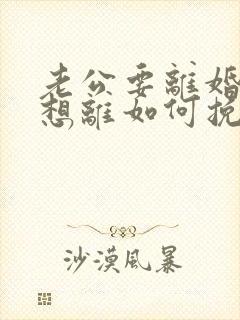 老公要離婚
想離如何挽
沙漠風暴